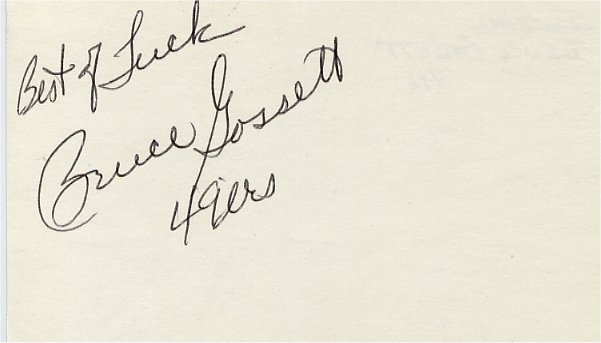 Best of Luck
Bruce Gossett
49ers